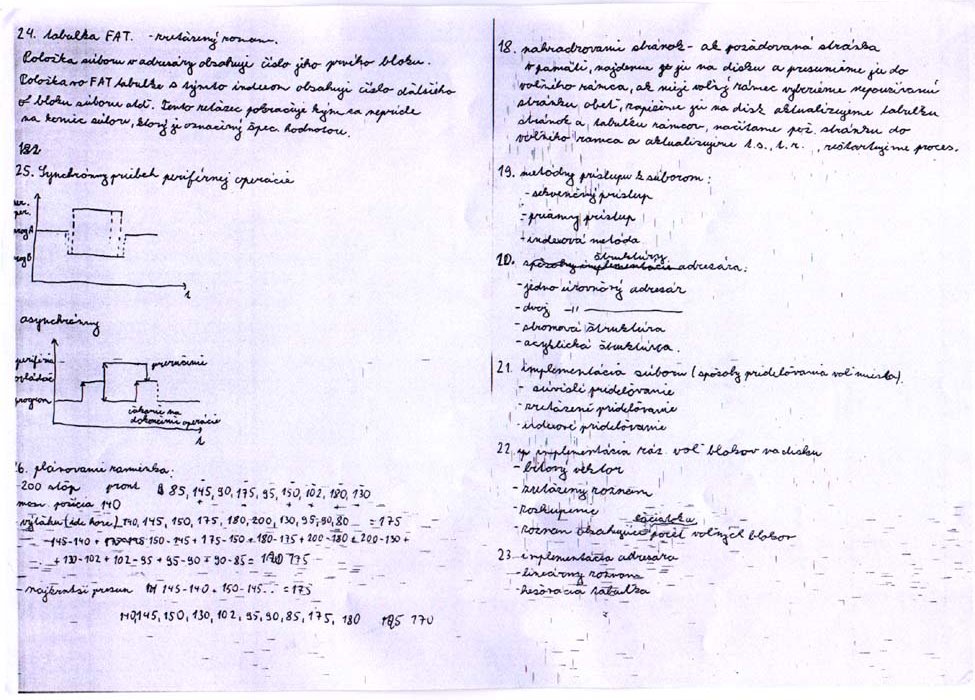 24. tabulka FAT. - zreťazený zoznam.
Položka súboru v adresáry obsahuje číslo jeho prvého bloku.
Položka vo FAT tabulke s týmto indexom obsahuje číslo ďalšieho
bloku súboru atď. Tento reťazec pokračuje kým sa nepríde
na koniec súboru, ktorý je označený špec. hodnotou.
182
25. Synchrónny priebeh periférnej operácie
per.
prog A
prog B
t
asynchrónny
periféria
prerušenie
ovládač
program
čakanie na
dokončenie operácie
t
26. plánovanie ramienka.
-200 stôp front 85, 145, 90, 175, 95, 150, 102, 180, 130
mom. pozícia 140
-výťahu (ide hore) 140, 145, 150, 175, 180, 200, 130, 95, 90, 80 = 175
145-140 + 150-145 + 175-150 + 180-175 + 200-180 + 200-130 +
+ 130-102 + 102-95 + 95-90 + 90-85 = 175
- najkratší presun 145-140 + 150-145 .. = 175
140, 145, 150, 130, 102, 95, 90, 85, 175, 180 170
18. nahradzovanie stránok - ak požadovaná stránka
v pamäti, nájdeme ju na disku a presunieme ju do
voľného rámca, ak nieje voľný rámec vyberieme nepoužívanú
stránku obeť, zapíšeme ju na disk aktualizujeme tabuľku
stránok a tabuľku rámcov, načítame pož. stránku do
voľného rámca a aktualizujeme t.s., t.r., reštartujeme proces.
19. metódny prístupu k súborom:
- sekvenčný prístup
- priamy prístup
- indexová metóda
20. štruktúry adresára:
- jedno úrovňový adresár
- dvoj —"—
- stromová štruktúra
- acyklická štruktúra.
21. implementácia súboru (spôsoby prideľovania voľ. miesta).
- súvislé prideľovanie
- zreťazené prideľovanie
- indexové prideľovanie
22. implementácia voľ. blokov na disku
- bitový vektor
- zreťazený zoznam
- zoskupenie
začiatok a
- zoznam obsahujúci počet voľných blokov
23. implementácia adresára
- lineárny zoznam
- hešovacia tabuľka